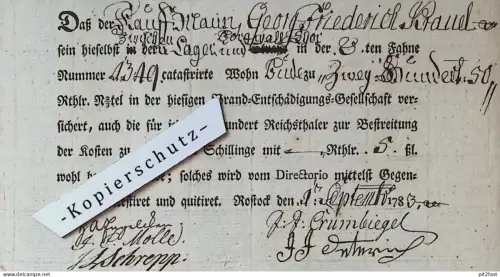 Daß der Kauff Mann Georg Friederich
sein hieselbst in der Lager und in der S. ten Fahne
Nummer 1349 catastrirte Wohn Bude zu Zwey Hundert 50
Rthlr. Nztel in der hiesigen Brand-Entschädigungs-Gesellschaft ver-
sichert, auch die für hundert Reichsthaler zur Bestreitung
der Kosten zu Schillinge mit — Rthlr. 5. ßl.
wohl solches wird vom Directorio mittelst Gegen-
und quitiret. Rostock den Septemb 1783.
-Kopierschutz-
J. J. Crumbiegel
Molle.
Schrepp.